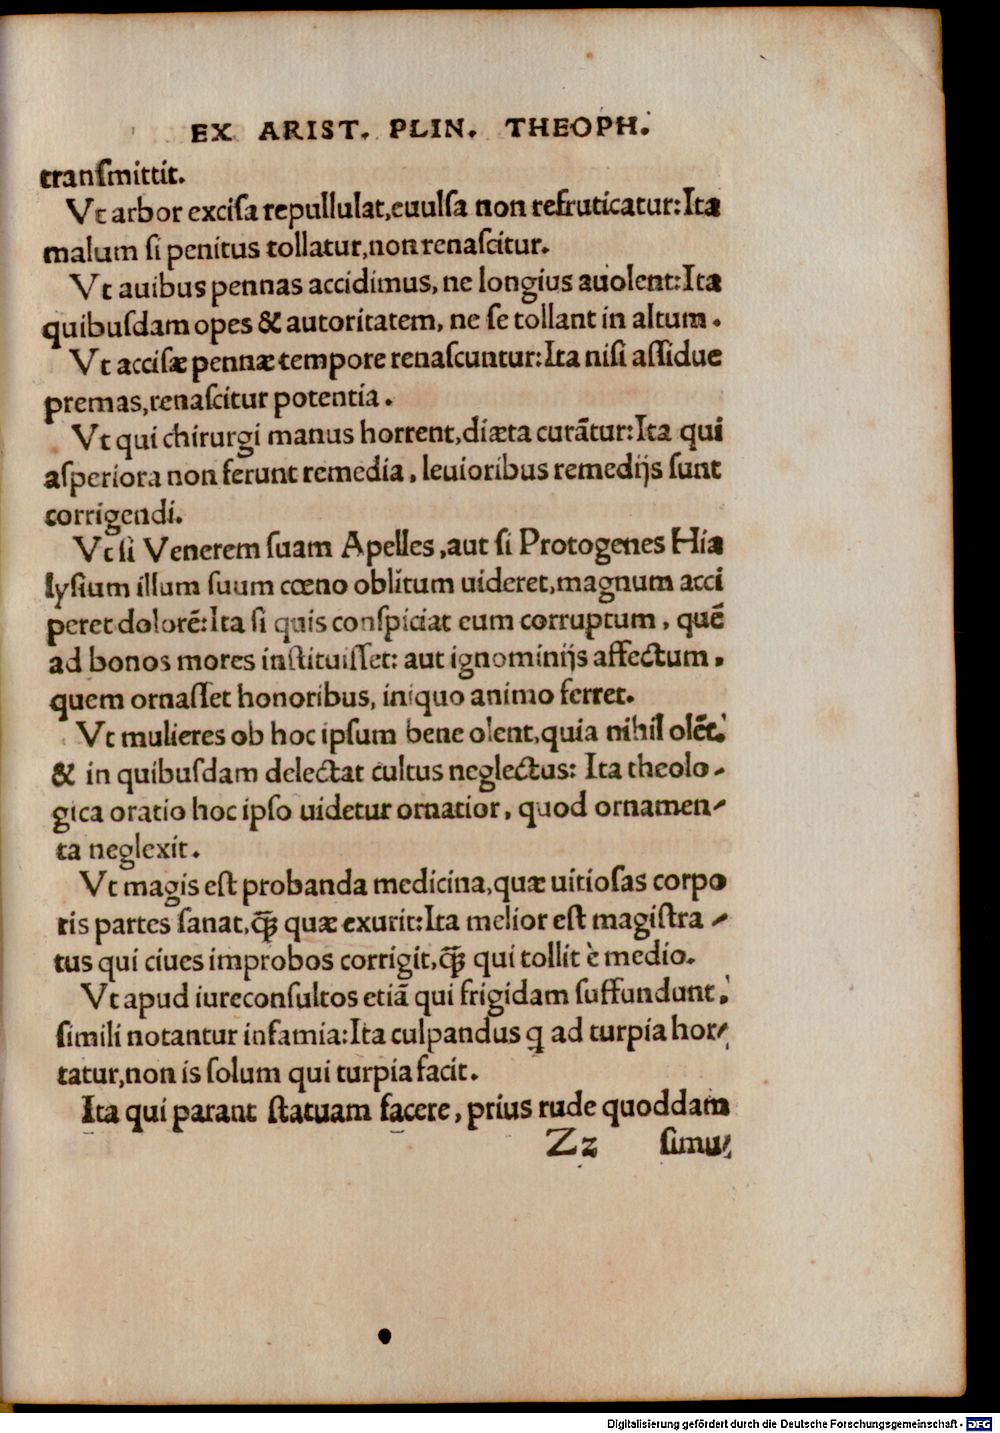 EX ARIST. PLIN. THEOPH.
tranſmittit.
Vt arbor exciſa repullulat,euulſa non refruticatur:Ita
malum ſi penitus tollatur,non renaſcitur.
Vt auibus pennas accidimus, ne longius auolent:Ita
quibuſdam opes & autoritatem, ne ſe tollant in altum.
Vt acciſæ pennæ tempore renaſcuntur:Ita niſi aſſidue
premas,renaſcitur potentia.
Vt qui chirurgi manus horrent,diæta curãtur:Ita qui
aſperiora non ferunt remedia, leuioribus remedijs ſunt
corrigendi.
Vt ſi Venerem ſuam Apelles,aut ſi Protogenes Hia
lyſium illum ſuum cœno oblitum uideret,magnum acci
peret dolorẽ:Ita ſi quis conſpiciat eum corruptum, quẽ
ad bonos mores inſtituiſſet: aut ignominijs affectum,
quem ornaſſet honoribus, iniquo animo ferret.
Vt mulieres ob hoc ipſum bene olent,quia nihil olẽt:
& in quibuſdam delectat cultus neglectus: Ita theolo-
gica oratio hoc ipſo uidetur ornatior, quod ornamen-
ta neglexit.
Vt magis eſt probanda medicina,quæ uitioſas corpo
ris partes ſanat,ꝙ̃ quæ exurit:Ita melior eſt magiſtra-
tus qui ciues improbos corrigit,ꝙ̃ qui tollit è medio.
Vt apud iureconſultos etiã qui frigidam ſuffundunt,
ſimili notantur infamia:Ita culpandus q ad turpia hor-
tatur,non is ſolum qui turpia facit.
Ita qui parant ſtatuam facere, prius rude quoddam
Zz ſimu-
Digitalisierung gefördert durch die Deutsche Forschungsgemeinschaft - DFG